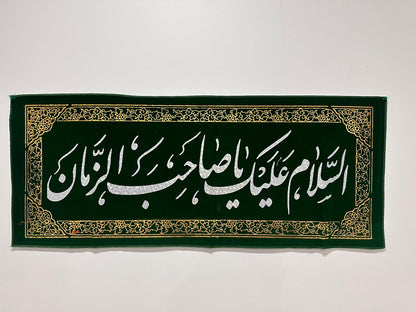 السَّلامُ عَلَيْكَ يا صاحِبَ الزَّمان